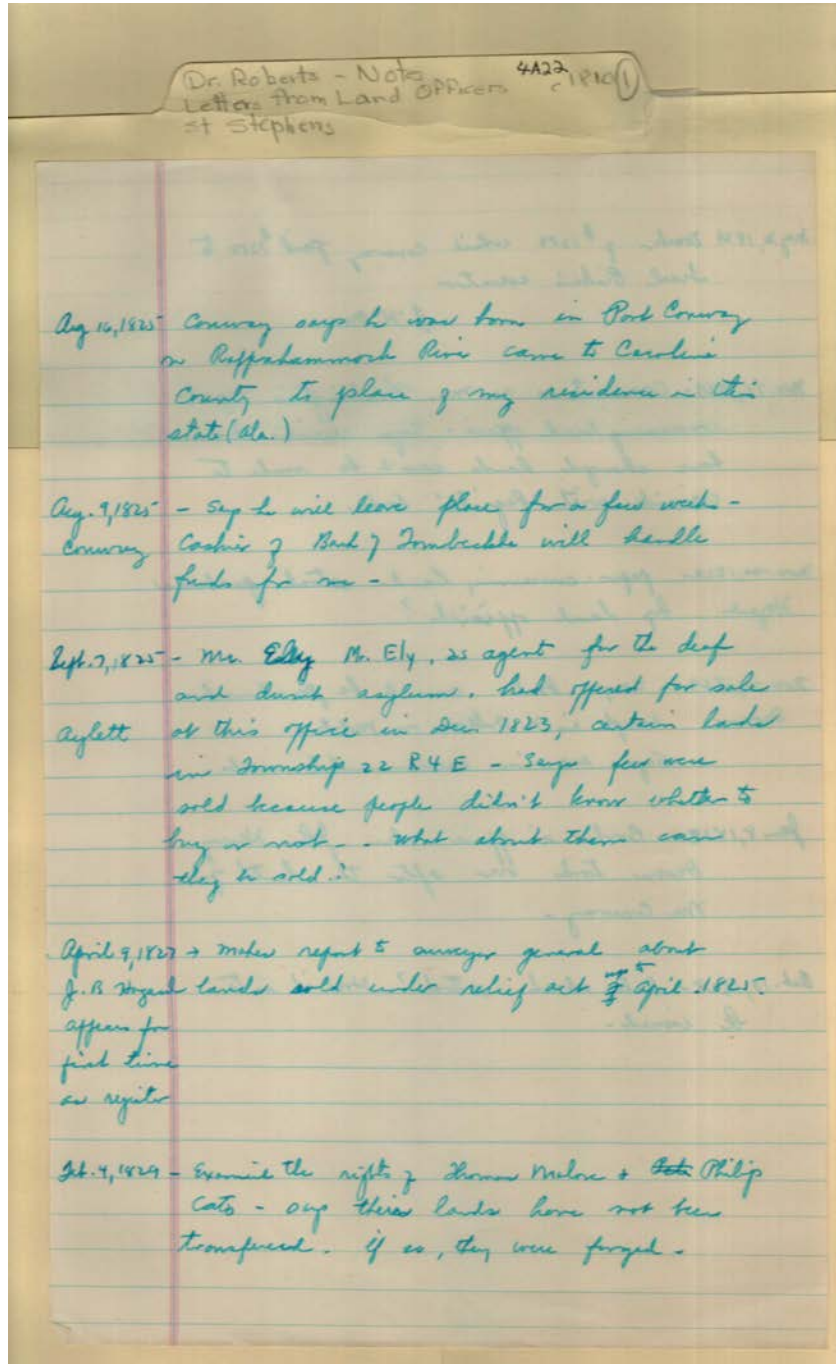 Dr. Roberts - Notes 4A22 c1810 1
Letters from Land Officers
St Stephens
Aug 16, 1825 Conway says he was born in Port Conway
on Rappahammock River came to Caroline
County to place of my residence in this
state (Ala.)
Aug. 9, 1825 - Says he will leave place for a few weeks -
Conway Cashier of Bank of Tombeckbe will handle
funds for me -
Sept. 7, 1825 - Mr. Ely Mr. Ely, as agent for the deaf
and dumb asylum, had offered for sale
Aylett at this office in Dec. 1823, certain lands
in Township 22 R 4 E - Says few were
sold because people didn't know whether to
buy or not - . What about them can
they be sold.
April 9, 1827 → makes report to surveyor general about
J. B Hazard lands sold under relief act up to April 1825.
appears for
first time
as register
Feb. 4, 1829 - Examine the rights of Thomas Malone + Philip
Cato - says their lands have not been
transfered. If so, they were forged.